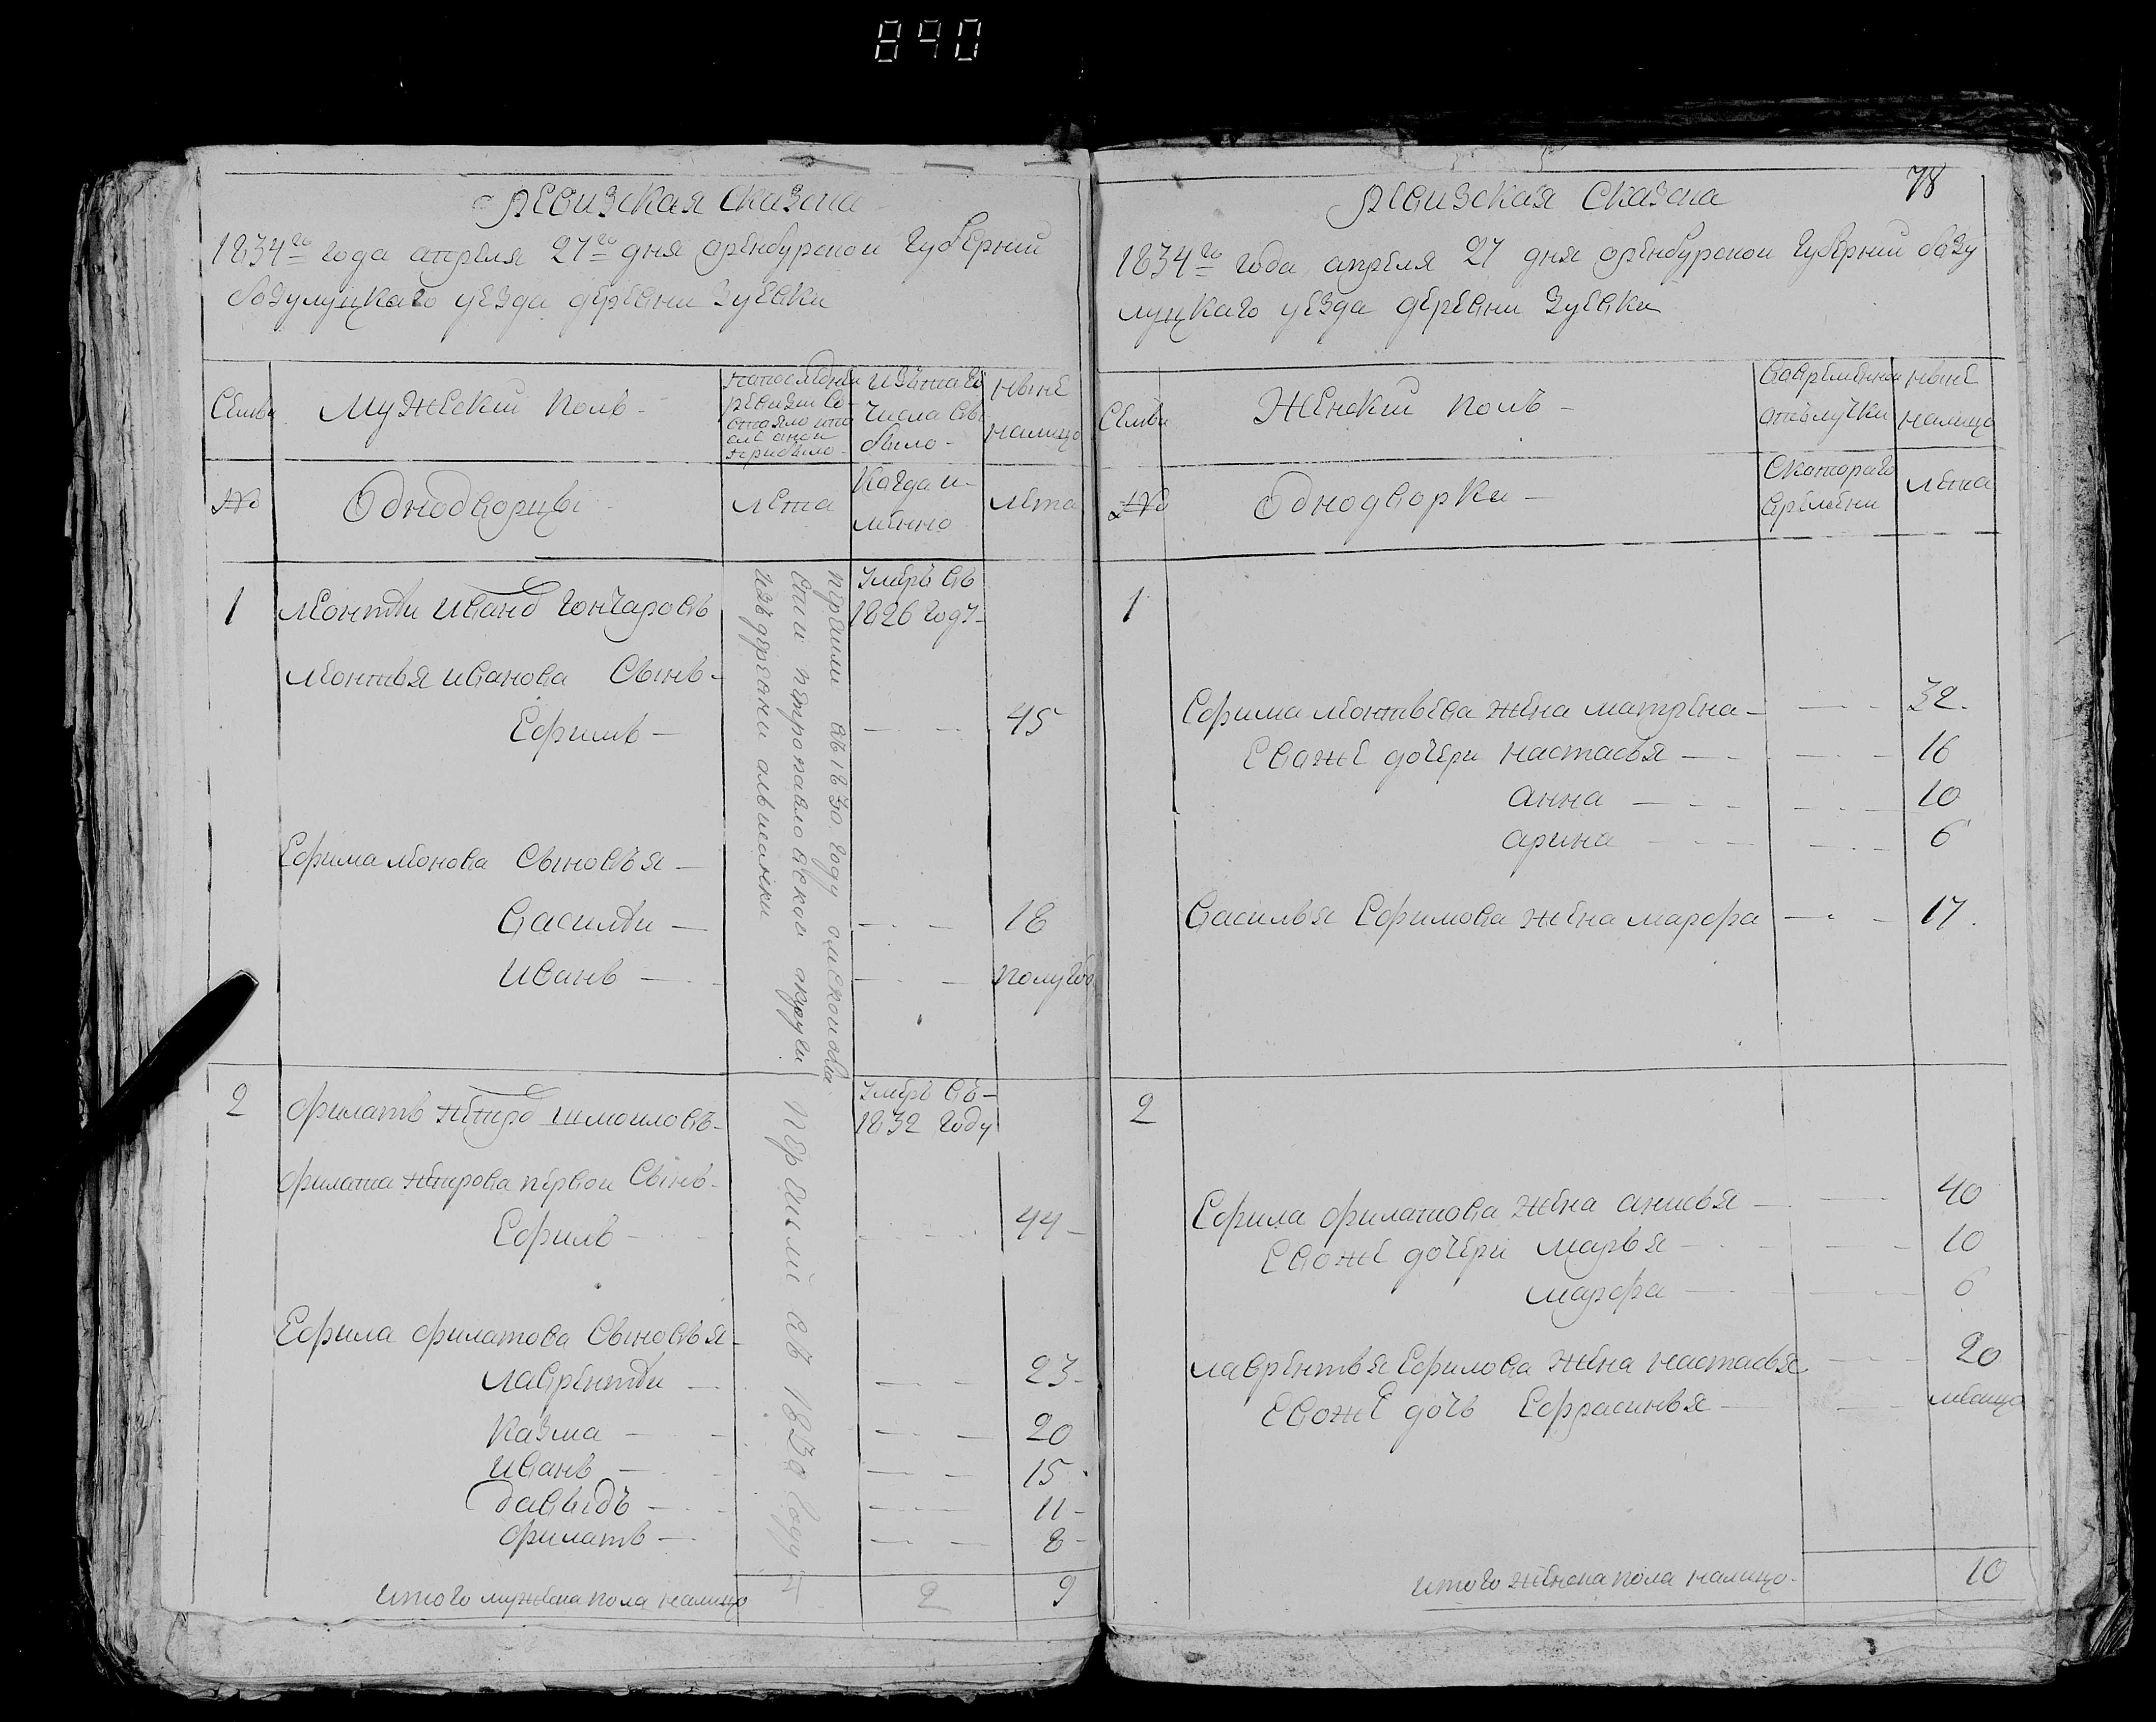 890
Ревизская сказка
1834го года апреля 27го дня оренбурской губернии
бузулуцкаго уезда деревни Зуевки
Семьи
Мужеский полъ
напоследней ревизии состояло ипо
сле оной прибыло
изтаго числа выбыло
ныне налицо
№
Однодворцы
лета
Когда имянно
лета
1
Леонтѣи Ивановъ Гончаровъ
Умеръ въ 1826 году
Леонтья иванова Сынъ
Ефимъ
45
Ефима леонова Сыновья
Василѣи
18
Иванъ
полугода
прешли въ 1830 году омской обл
сти петропавловской округи
изъ деревни
2
Филатъ Шмоиловъ
Умеръ въ 1832 году
Филата первой Сынъ
Ефимъ
44
Ефима филатова Сыновья
Лаврентѣи
23
Казма
20
Иванъ
15
Давыдъ
11
Филатъ
8
перешли въ 183 году
итого мужеска пола налицо
2
9
78
Ревизская Сказка
1834го года апреля 27 дня оренбурской губернии бузу
луцкаго уезда деревни Зуевки
Семьи
Женский полъ
Вовременной отълучки
ныне налицо
№
Однодворки
Скотораго времени
лета
1
Ефима леонтьева жена матрена
32
Евоже дочери настасья
16
анна
10
арина
6
Василья Ефимова жена марфа
17
2
Ефима филатова жена анисья
40
Евоже дочери марья
10
марфа
6
лаврентья Ефимова жена настасья
20
Евоже дочь Ефрасинья
месяцо
итого женска пола налицо
10